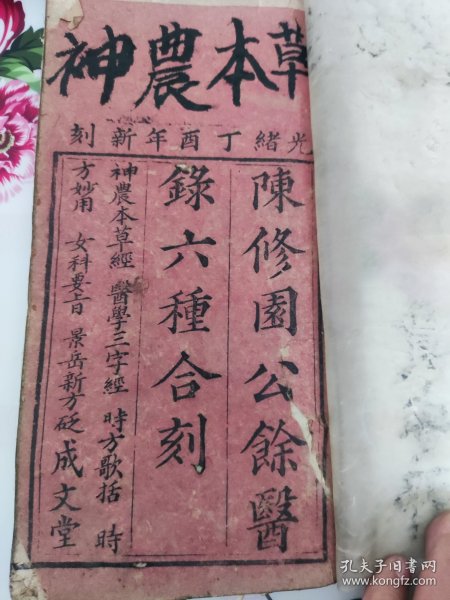 草本農神
光緒丁酉年新刻
陳修園公餘醫
錄六種合刻
神農本草經 醫學三字經 時方歌括 時
方妙用 女科要旨 景岳新方砭 成文堂
孔夫子旧书网
www.kongfz.com